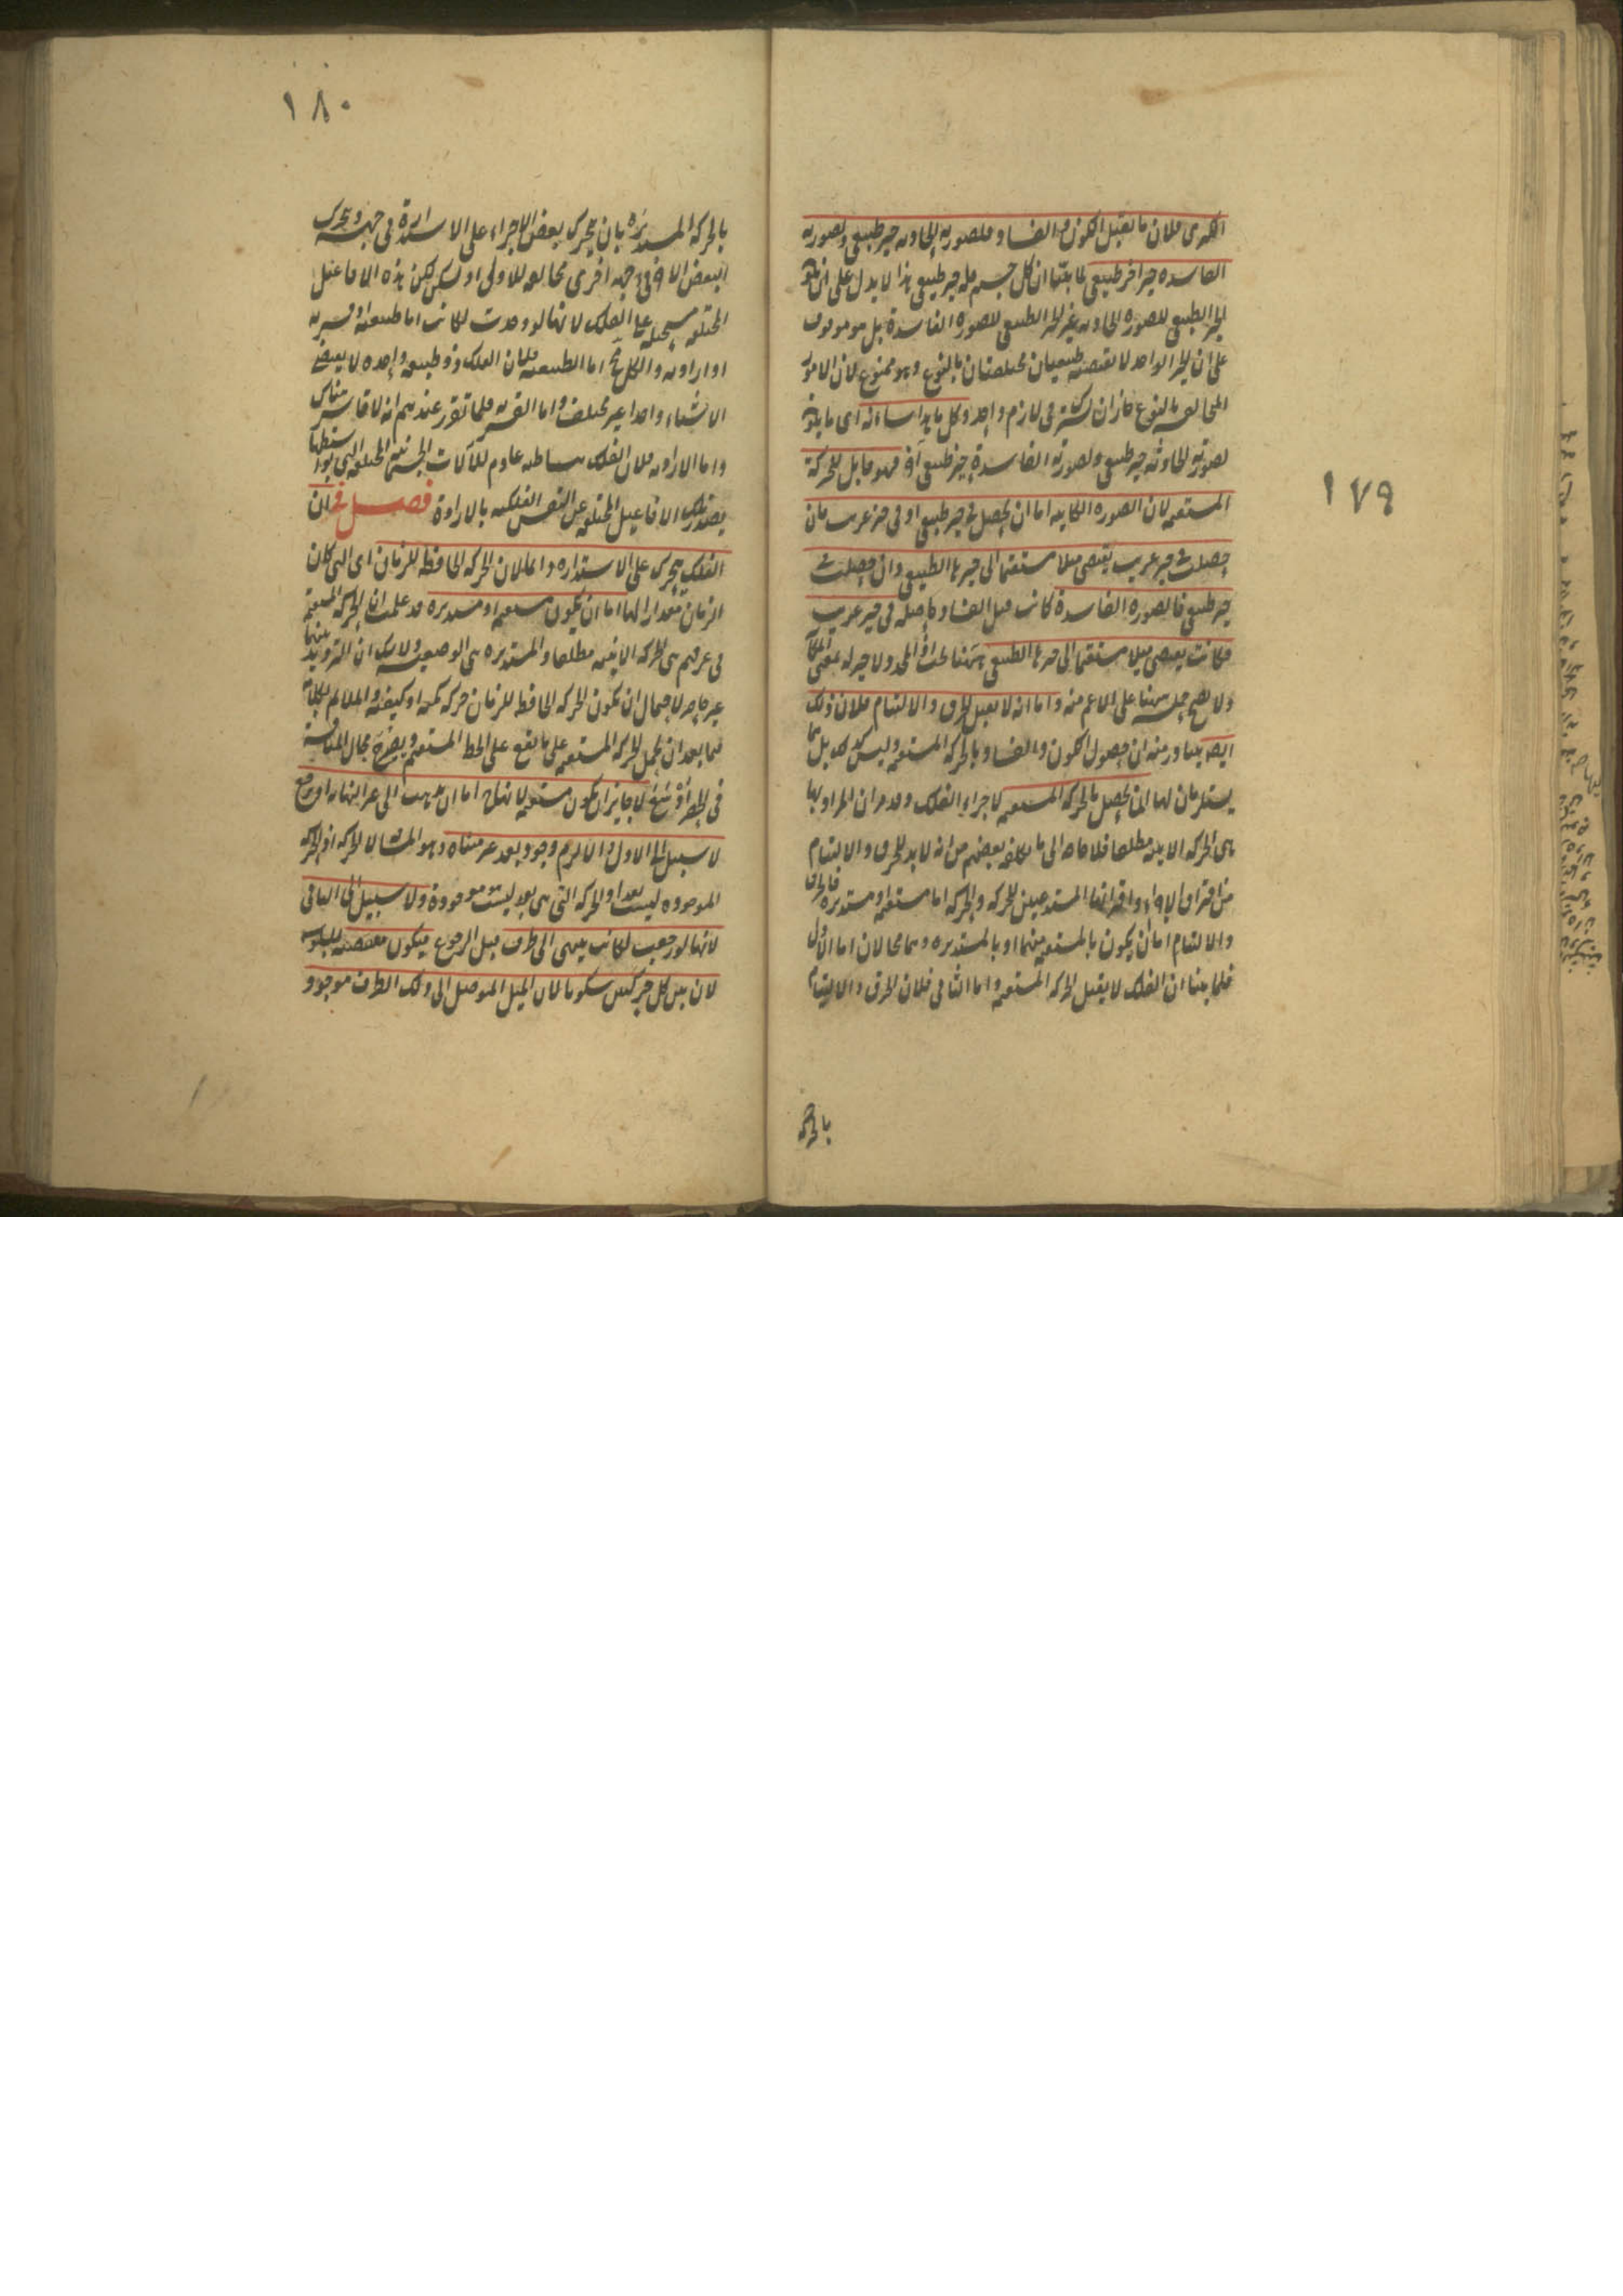 ١٧٩
الكبرى فلان ما يقبل الكون والفساد فلصورته الحادثة حيز طبيعي ولصورته
الفاسدة حيز اخر طبيعي لما بينا ان كل جسم فله حيز طبيعي هذا لا يدل على ان
الحيز الطبيعي للصورة الحادثة غير الحيز الطبيعي للصورة الفاسدة بل هو موقوف
على ان الحيز الواحد لا تقتضيه طبيعتان مختلفتان بالنوع وهو ممنوع لان الامور
المخالفة بالنوع جاز ان تشترك في لازم واحد وكل ما هذا شانه اى ما يكون
لصورته الحادثة حيز طبيعي ولصورته الفاسدة حيز طبيعي آخر فهو قابل للحركة
المستقيمة لان الصورة الكاينة اما ان تحصل في حيز طبيعي او في حيز غريب فان
حصلت في حيز غريب يقتضى ميلا مستقيما الى حيزها الطبيعي وان حصلت في
حيز طبيعي فالصورة الفاسدة كانت قبل الفساد حاصلة في حيز غريب
فكانت يقتضى ميلا مستقيما الى حيزها الطبيعي هھنا بحث اذ المحدد لا حيز له بمعنى المكان
ولا يصح حمله ههنا على الاعم منه واما انه لا يقبل الخرق والالتيام فلان ذلك
ايضا يتبادر منه ان حصول الكون والفساد بالحركة المستقيمة وليس كذلك بل هما
يستلزمان لها انما يحصل بالحركة المستقيمة لاجزاء الفلك وقد مر ان المراد بها
هى الحركة الاينية مطلقا فلا حاجة الى ما تكلفه بعضهم من انه لا بد للخرق والالتيام
من افتراق الاجزاء واقترانها المستدعيين للحركة والحركة اما مستقيمة او مستديرة فالخرق
والالتيام اما ان يكون بالمستقيمة منهما او بالمستديرة وهما محالان اما الاول
فلما بينا ان الفلك لا يقبل الحركة المستقيمة واما الثانى فلان الخرق والالتيام
بالحركة
١٨٠
بالحركة المستديرة بان يتحرك بعض الاجزاء على الاستدارة في جهة ويتحرك
البعض الآخر في جهة اخرى مخالفة للاولى او يسكن لكن هذه الافاعيل
المختلفة مستحيلة على الفلك لانها لو وجدت لكانت اما طبيعية او قسرية
او ارادية والكل مح اما الطبيعية فلان الفلك ذو طبيعة واحدة لا يقتضى
الا شيئا واحدا غير مختلف واما القسرية فلما تقرر عندهم انه لا قاسر هناك
واما الارادية فلان الفلك بساطته عادم للآلات الجسمية المختلفة التى بواسطتها
يصدر تلك الافاعيل المختلفة عن النفس الفلكية بالارادة فصل في ان
الفلك يتحرك على الاستدارة دائما لان الحركة الحافظة للزمان اى التى كان
الزمان مقدارا لها اما ان يكون مستقيمة او مستديرة قد علمت ان الحركة المستقيمة
في عرفهم هى الحركة الاينية مطلقا والمستديرة هى الوضعية ولا شك ان الترديد بينهما
غير حاصر لاحتمال ان تكون الحركة الحافظة للزمان حركة كمية او كيفية والملائم لكلامه
فيما بعد ان يحمل الحركة المستقيمة على ما يقع على الخط المستقيم مجال المناقشة
في الحصر اوسع لا جايز ان تكون مستقيمة لانها اما ان تذهب الى غير النهاية او ترجع
لا سبيل الى الاول والا لزم وجود بعد غير متناه وهو المسافة لا الحركة اذ الحركة
الموجودة ليست بعدا والحركة التى هى بعد ليست موجودة ولا سبيل الى الثانى
لانها لو رجعت لكانت ينتهى الى طرف قبل الرجوع فيكون مقتضية للسكون
لان بين كل حركتين سكونا لان الميل الموصل الى ذلك الطرف موجود